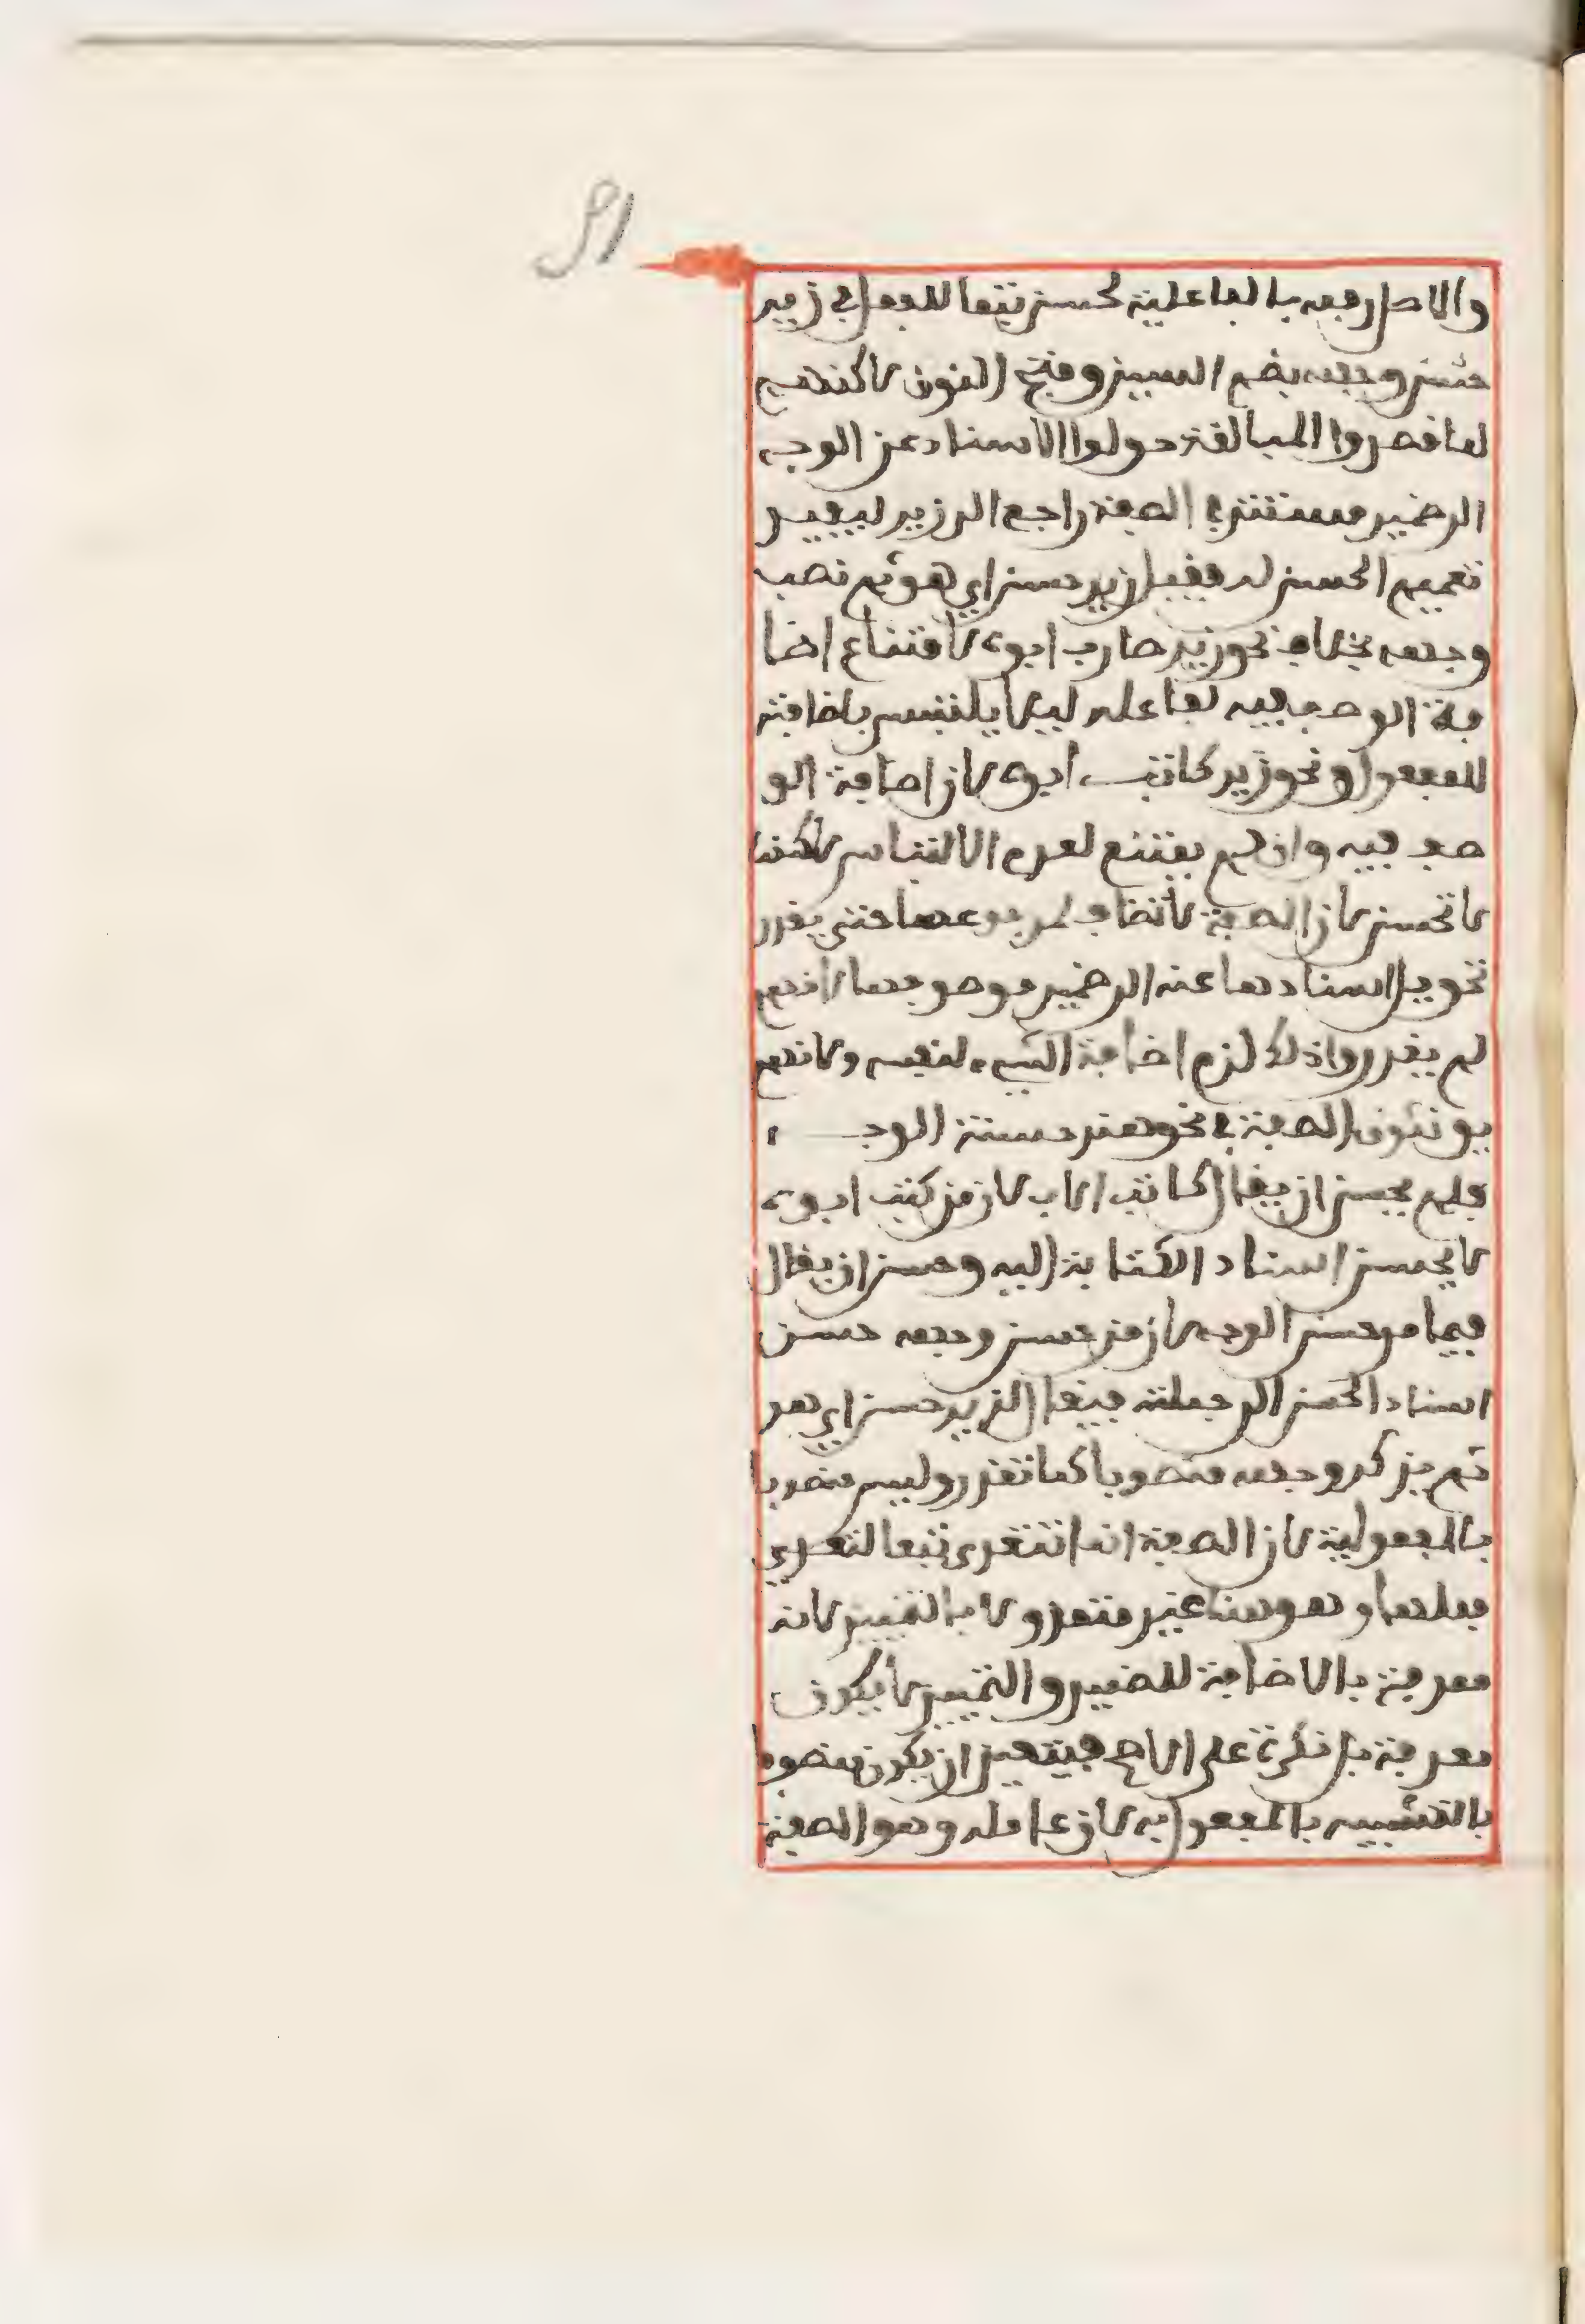 والاصل رفعه بالفاعلية لحسن تبعا للفعل في زيد
حسن وجهه بضم السين وفتح النون لاكنهم
لما قصدوا المبالغة حولوا الاسناد عن الوجه
الى ضمير مستتر في الصفة راجع الى زيد ليفيد
تعميم الحسن له فقيل زيد حسن اي هو ثم نصب
وجهه بخلاف نحو زيد ضارب ابوه لامتناع اضا
فة الوصف فيه لفاعله ليلا يلتبس باضافته
للمفعول ونحو زيد كاتب ابوه لان اضافة الو
صف فيه وان لم يمتنع لعدم الالتباس لاكنها
لا تحسن لان الصفة لا تضاف لمرفوعها حتى يقدر
تحويل اسنادها عنه الى ضمير موصوفها لانهم
لم يقدروا ذلك لزم اضافة الشيء لنفسه ولانهم
يونثون الصفة في نحو هند حسنة الوجه
فلم يحسن ان يقال كاتب الاب لان من كتب ابوه
لا يحسن اسناد الكتابة اليه وحسن ان يقال
فيما مر حسن الوجه لان من حسن وجهه حسن
اسناد الحسن الى جملته فيقال زيد حسن اي هو
ثم يذكر وجهه منصوبا كما تقرر وليس منصوبا
بالمفعولية لان الصفة انما تتعدى تبعا لتعدي
فعلها وهو هنا غير متعد ولا بالتمييز لانه
معرفة بالاضافة للضمير والتمييز لا يكون
معرفة بل نكرة على الاصح فيتعين ان يكون منصوبا
بالتشبيه بالمفعول به لان عامله وهو الصفة